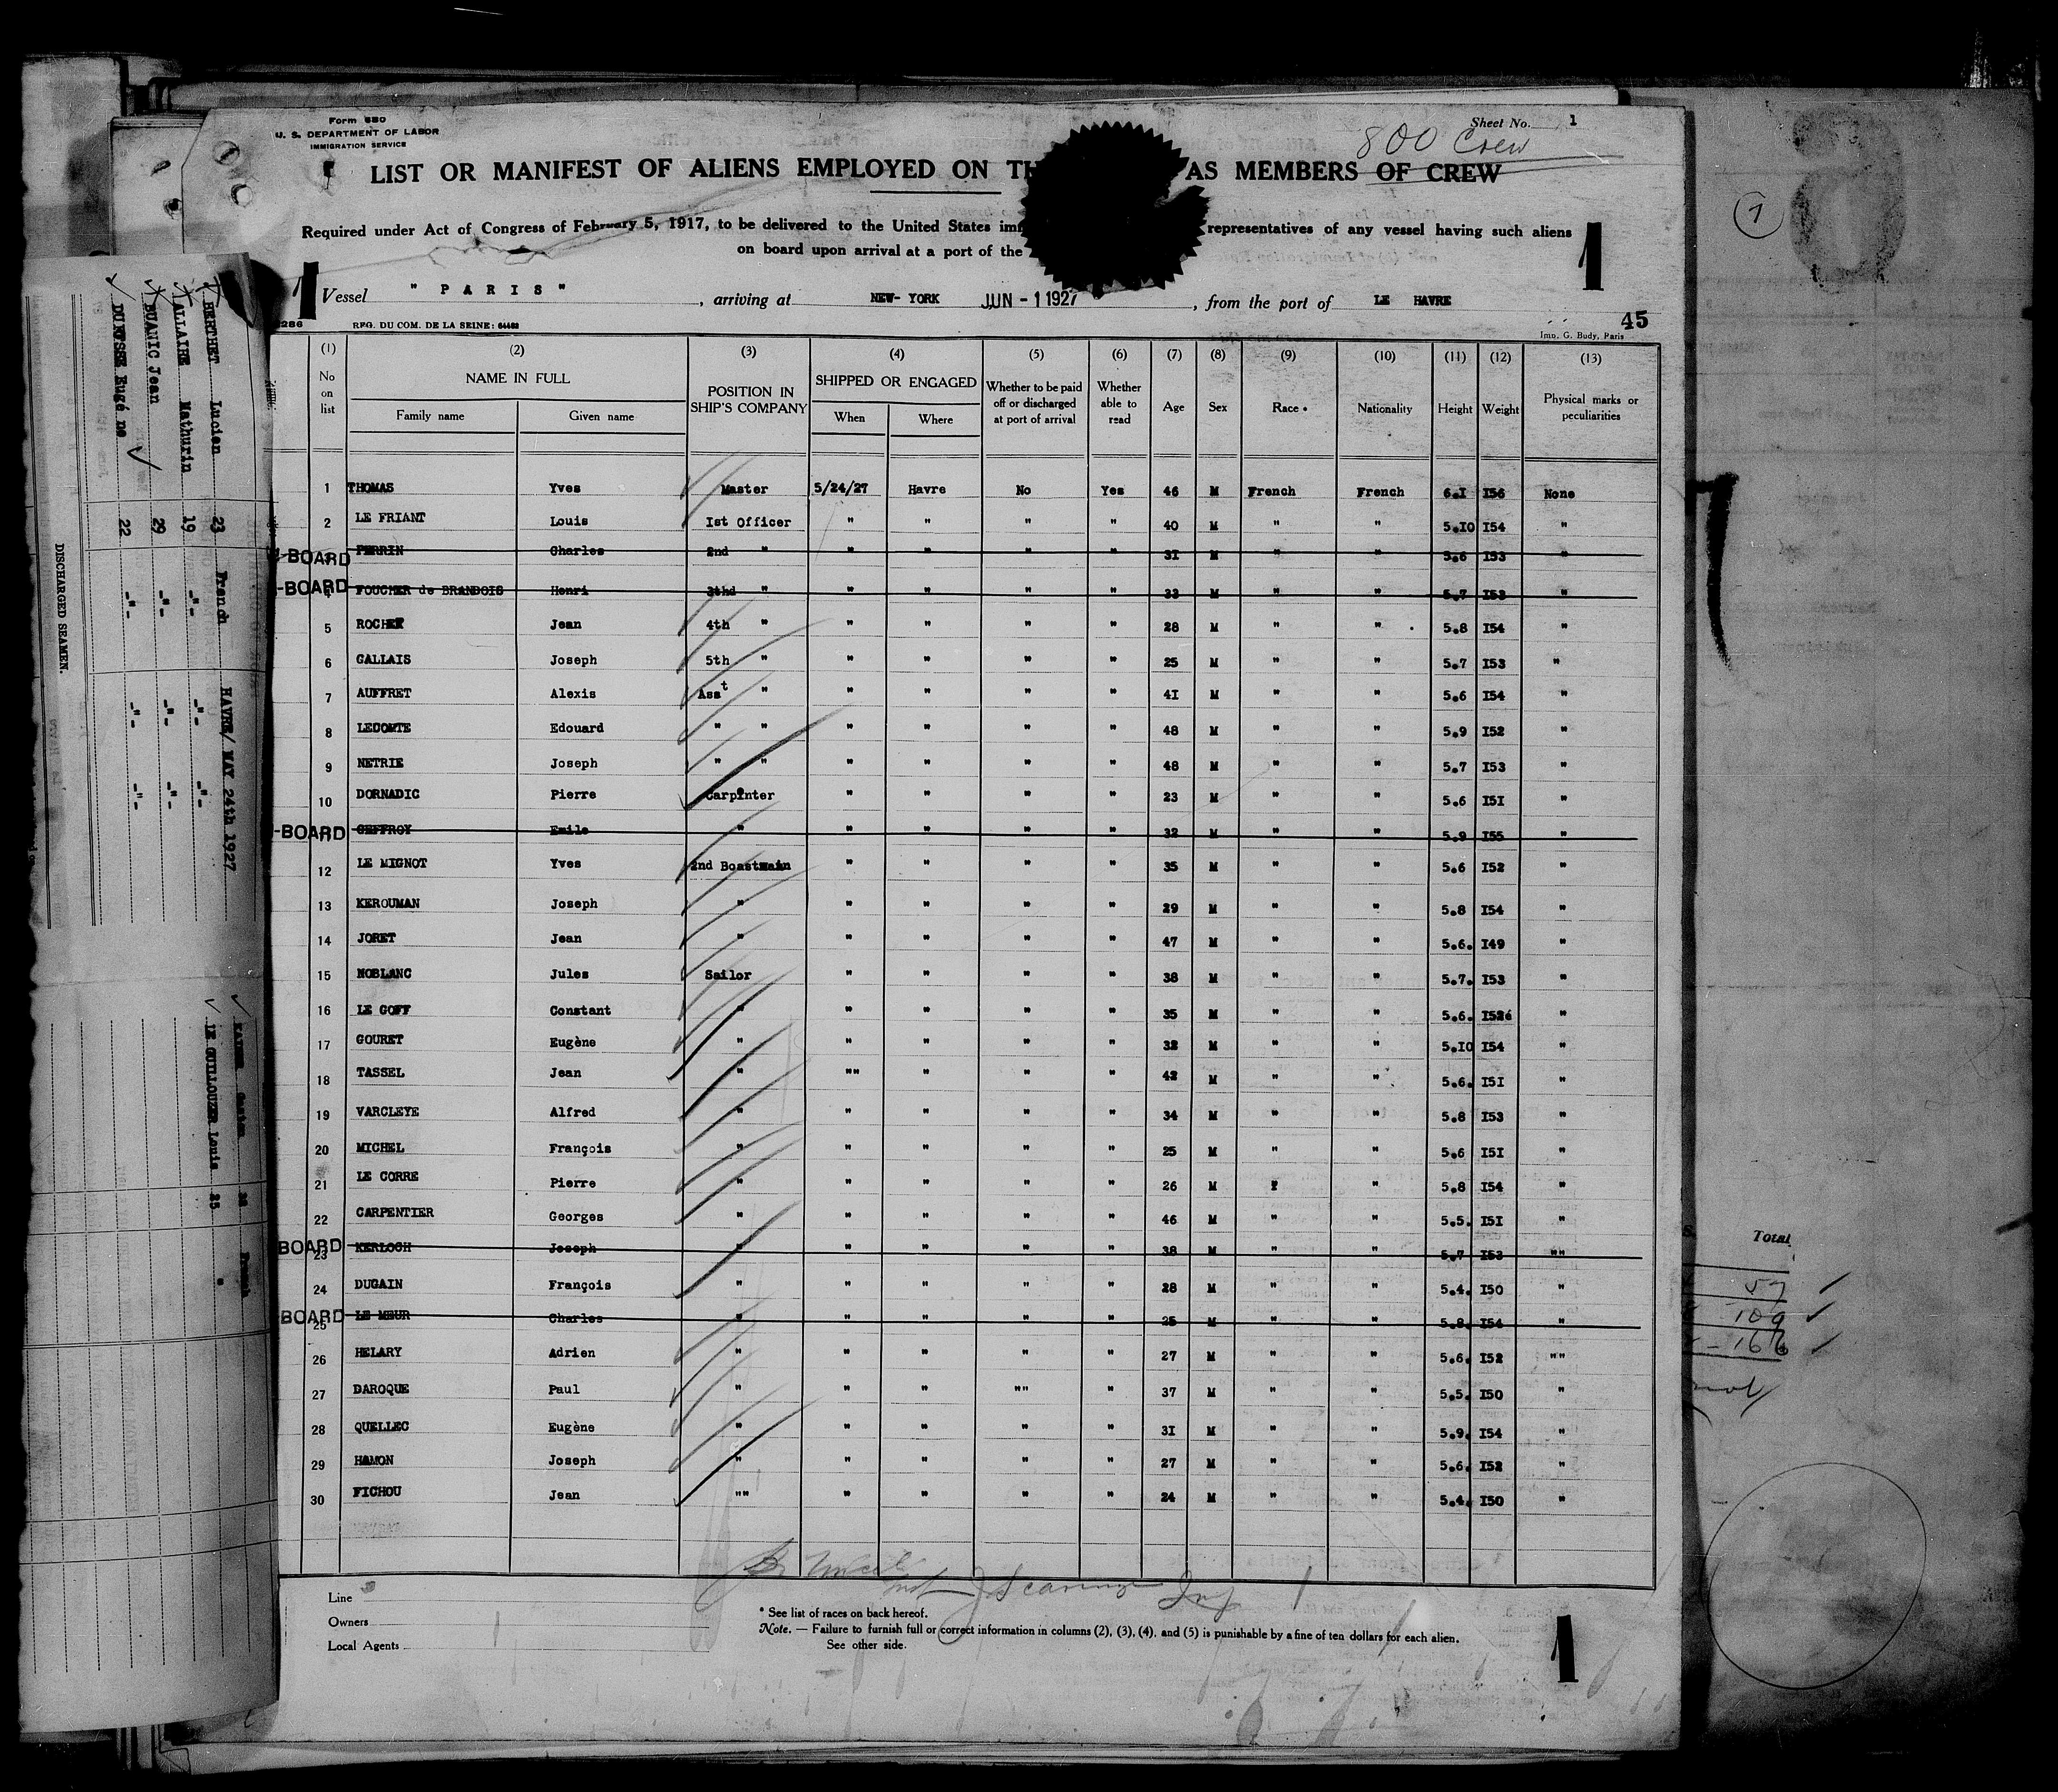 Form 680
U. S. DEPARTMENT OF LABOR
IMMIGRATION SERVICE
Sheet No. 1
800 Crew
LIST OR MANIFEST OF ALIENS EMPLOYED ON AS MEMBERS OF CREW
Required under Act of Congress of February 5, 1917, to be delivered to the United States representatives of any vessel having such aliens
on board upon arrival at a port of the
1
1
Vessel " PARIS ", arriving at NEW-YORK JUN - 1 1927, from the port of LE HAVRE
286 REG. DU COM. DE LA SEINE: 64482
45
Imp. G. Budy, Paris
(1) (2) (3) (4) (5) (6) (7) (8) (9) (10) (11) (12) (13)
No on list NAME IN FULL POSITION IN SHIP'S COMPANY SHIPPED OR ENGAGED Whether to be paid off or discharged at port of arrival Whether able to read Age Sex Race * Nationality Height Weight Physical marks or peculiarities
Family name Given name When Where
1 THOMAS Yves Master 5/24/27 Havre No Yes 46 M French French 6.I I56 None
2 LE FRIANT Louis Ist Officer " " " " 40 M " " 5.IO I54 "
-BOARD PERRIN Charles 2nd " " " " " 3I M " " 5.6 I53 "
-BOARD 4 FOUCHER de BRANDOIS Henri 3thd " " " " " 33 M " " 5.7 I53 "
5 ROCHER Jean 4th " " " " " 28 M " " 5.8 I54 "
6 GALLAIS Joseph 5th " " " " " 25 M " " 5.7 I53 "
7 AUFFRET Alexis Asst " " " " " 4I M " " 5.6 I54 "
8 LECOMTE Edouard " " " " " " 48 M " " 5.9 I52 "
9 NETRIE Joseph " " " " " " 48 M " " 5.7 I53 "
10 DORNADIC Pierre Carpinter " " " " 23 M " " 5.6 I5I "
-BOARD 11 GEFFROY Emile " " " " " 32 M " " 5.9 I55 "
12 LE MIGNOT Yves 2nd Boastmain " " " " 35 M " " 5.6 I52 "
13 KEROUMAN Joseph " " " " " 29 M " " 5.8 I54 "
14 JORET Jean " " " " " 47 M " " 5.6. I49 "
15 NOBLANC Jules Sailor " " " " 38 M " " 5.7. I53 "
16 LE GOFF Constant " " " " " 35 M " " 5.6. I526 "
17 GOURET Eugène " " " " " 32 M " " 5.IO I54 "
18 TASSEL Jean " "" " " " 42 M " " 5.6. I5I "
19 VARCLEYE Alfred " " " " " 34 M " " 5.8 I53 "
20 MICHEL François " " " " " 25 M " " 5.6 I5I "
21 LE CORRE Pierre " " " " " 26 M " 5.8 I54 "
22 CARPENTIER Georges " " " " " 46 M " " 5.5. I5I "
BOARD 23 KERLOCH Joseph " " " " " 38 M " " 5.7 I53 ""
24 DUGAIN François " " " " " 28 M " " 5.4. I50 "
BOARD 25 LE MEUR Charles " " " " " 25 M " " 5.8. I54 "
26 HELARY Adrien " " " " " 27 M " " 5.6. I52 ""
27 DAROQUE Paul " " " "" " 37 M " " 5.5. I50 "
28 QUELLEC Eugène " " " " " 3I M " " 5.9. I54 "
29 HAMON Joseph " " " " " 27 M " " 5.6. I52 "
30 FICHOU Jean "" " " " " 24 M " " 5.4. I50 "
Line
Owners
Local Agents
* See list of races on back hereof.
Note. — Failure to furnish full or correct information in columns (2), (3), (4), and (5) is punishable by a fine of ten dollars for each alien.
See other side.
1
BERTHET Lucien 23 French HAVRE/ MAY 24th 1927
ALLAIRE Mathurin 19 -"- -"- -"-
BUANIC Jean 29 -"- -"- -"-
Eugé ne 22 -"- -"- -"-
DISCHARGED SEAMEN.
LE GUILLOUZER Louis 25 "
1
Total
57
109
166